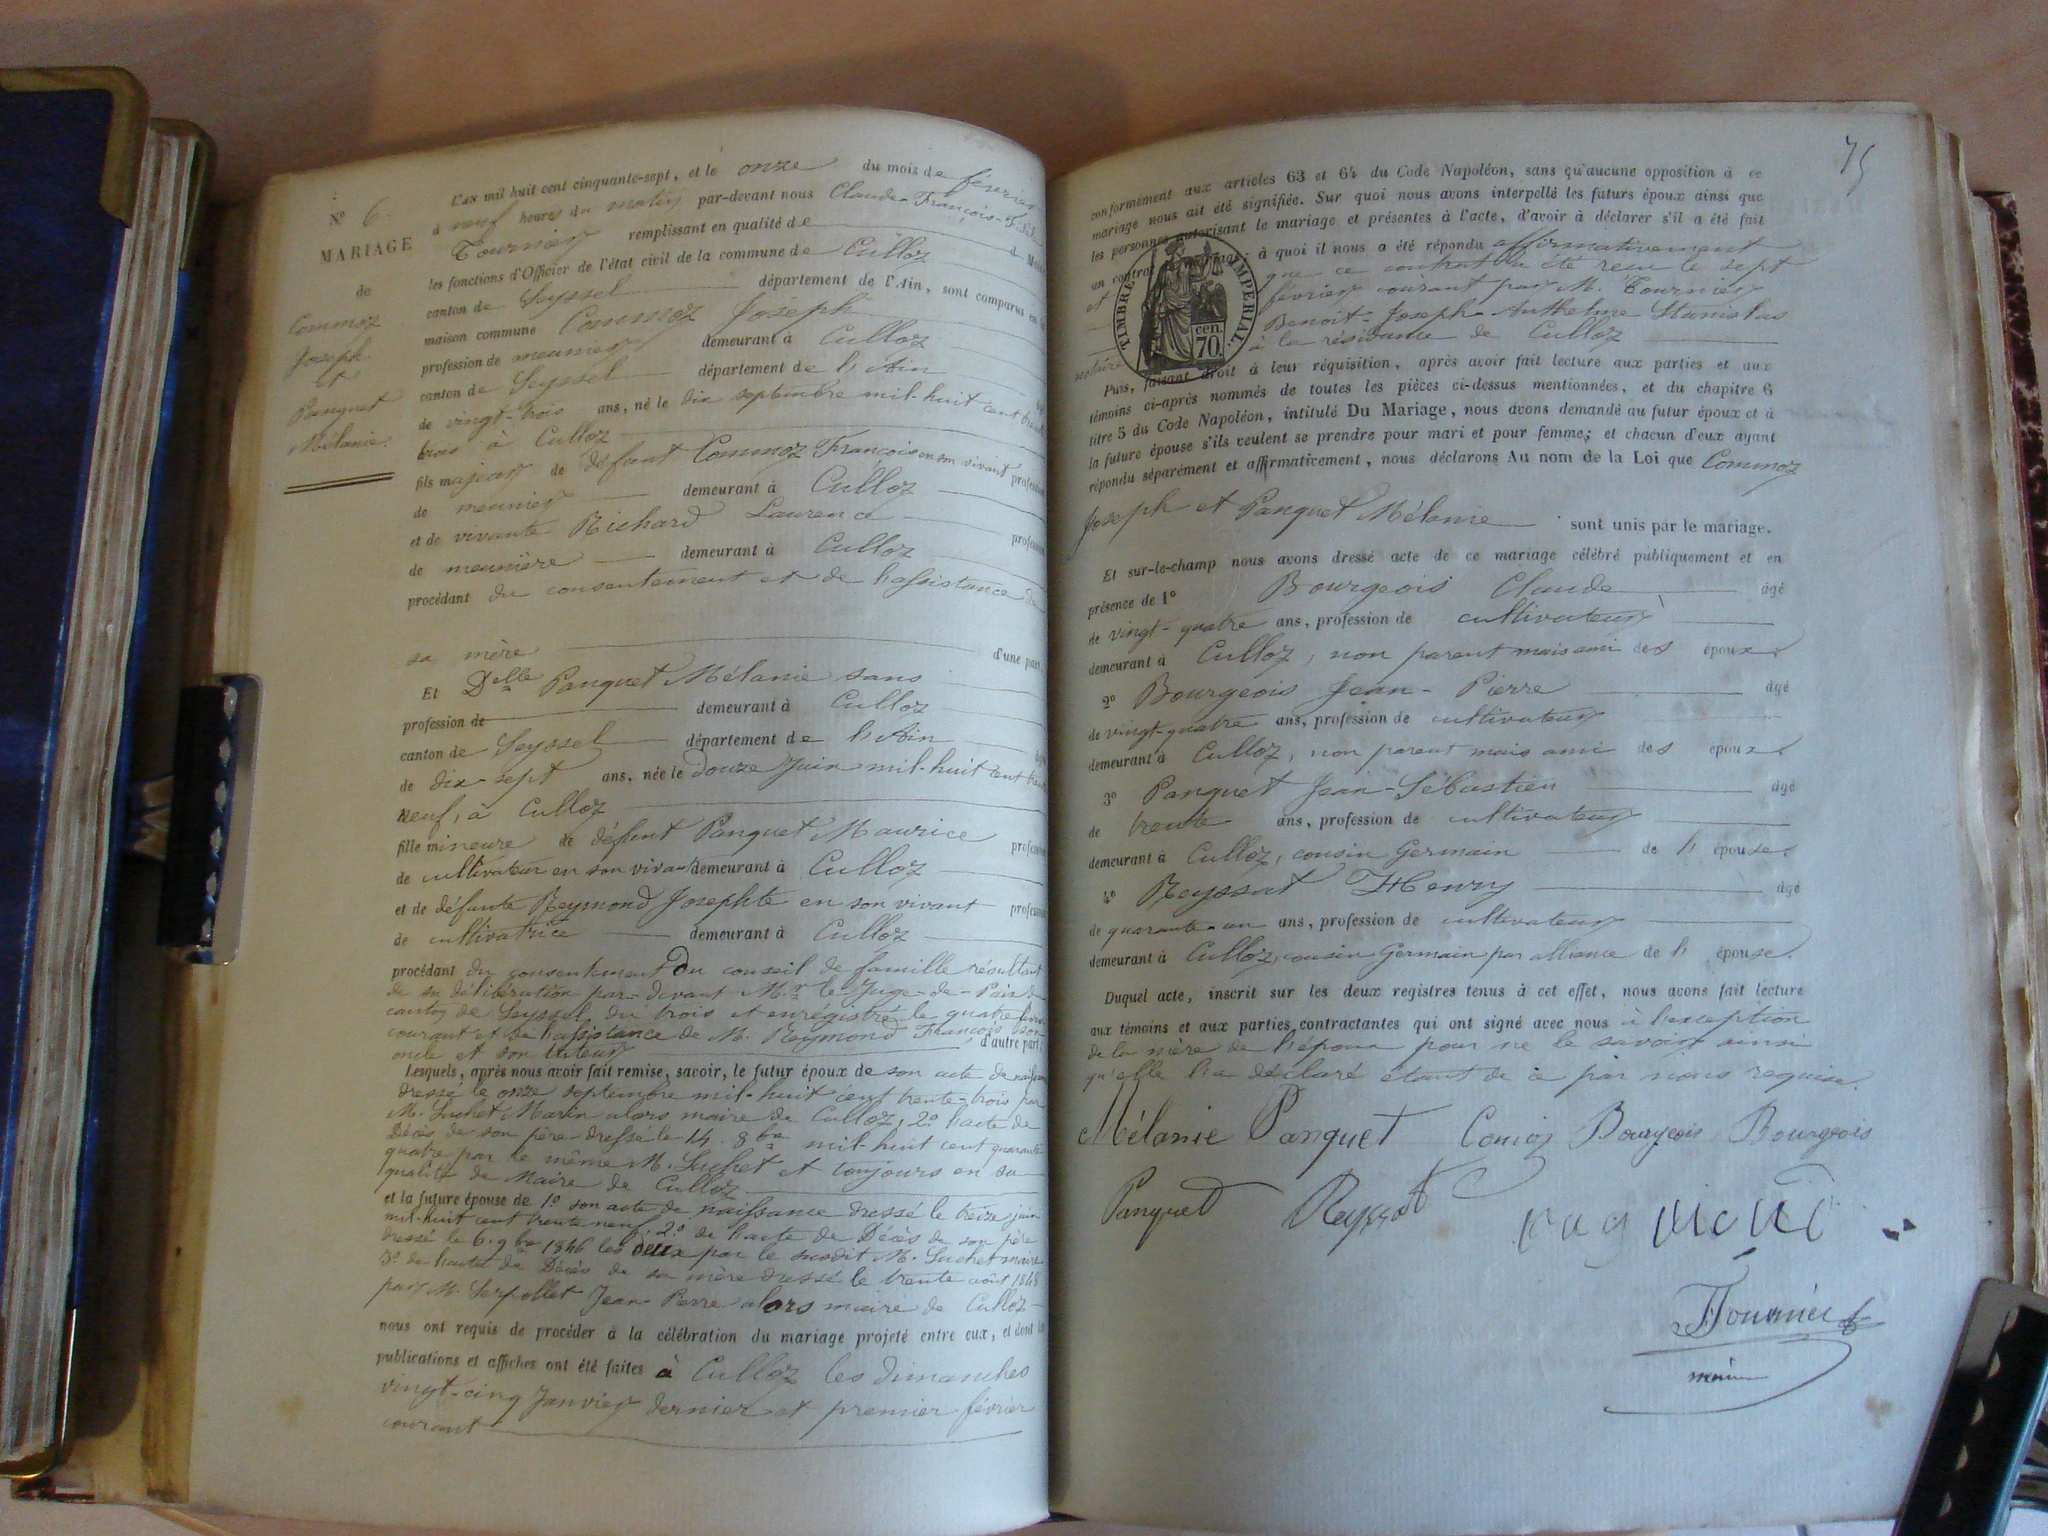 N° 6.
MARIAGE
de
Commoz
Joseph
et
Panquet
Mélanie.
L'an mil huit cent cinquante-sept, et le onze du mois de février
à neuf heures du matin par-devant nous Claude-François-
Tournier remplissant en qualité de
les fonctions d'Officier de l'état civil de la commune de Culloz
canton de Seyssel département de l'Ain, sont comparus en la
maison commune Commoz Joseph
profession de meunier demeurant à Culloz
canton de Seyssel département de l'Ain
de vingt-trois ans, né le dix septembre mil-huit cent trente
trois à Culloz
fils majeur de défunt Commoz François en son vivant profession
de meunier demeurant à Culloz
et de vivante Richard Laurence profession
de meunière demeurant à Culloz
procédant du consentement et de l'assistance de
sa mère d'une part
Et Delle Panquet Mélanie sans
profession de demeurant à Culloz
canton de Seyssel département de l'Ain
de dix-sept ans, née le douze Juin mil-huit cent trente
neuf, à Culloz
fille mineure de défunt Panquet Maurice profession
de cultivateur en son vivant demeurant à Culloz
et de défunte Reymond Josephte en son vivant profession
de cultivatrice demeurant à Culloz
procédant du consentement du conseil de famille résultant
de sa délibération par-devant M.r le Juge-de-Paix du
canton de Seyssel du trois et enregistré le quatre
courant et de l'assistance de M. Reymond François son
oncle et son tuteur d'autre part.
Lesquels, après nous avoir fait remise, savoir, le futur époux de son acte de naissance
dressé le onze septembre mil-huit cent trente-trois par
M. Suchet Marin alors maire de Culloz, 2° l'acte de
Décès de son père dressé le 14 8bre mil huit cent quarante
quatre par le même M. Suchet et toujours en sa
qualité de Maire de Culloz
et la future épouse de 1° son acte de naissance dressé le treize juin
mil-huit cent trente neuf, 2° de l'acte de Décès de son père
dressé le 6 9bre 1846 les deux par le susdit M. Suchet maire
3° de l'acte de Décès de sa mère dressé le trente août 1848
par M. Serpollet Jean Pierre alors maire de Culloz
nous ont requis de procéder à la célébration du mariage projeté entre eux, et dont les
publications et affiches ont été faites à Culloz les dimanches
vingt-cinq Janvier dernier et premier février
courant
75
conformément aux articles 63 et 64 du Code Napoléon, sans qu'aucune opposition à ce
mariage nous ait été signifiée. Sur quoi nous avons interpellé les futurs époux ainsi que
les personnes autorisant le mariage et présentes à l'acte, d'avoir à déclarer s'il a été fait
un contrat de mariage; à quoi il nous a été répondu affirmativement
et que ce contrat a été reçu le sept
février courant par M. Tournier
Benoît-Joseph-Anthelme Stanislas
notaire à la résidence de Culloz
TIMBRE IMPERIAL
70 cen.
Puis, faisant droit à leur réquisition, après avoir fait lecture aux parties et aux
témoins ci-après nommés de toutes les pièces ci-dessus mentionnées, et du chapitre 6
titre 5 du Code Napoléon, intitulé Du Mariage, nous avons demandé au futur époux et à
la future épouse s'ils veulent se prendre pour mari et pour femme; et chacun d'eux ayant
répondu séparément et affirmativement, nous déclarons Au nom de la Loi que Commoz
Joseph et Panquet Mélanie sont unis par le mariage.
Et sur-le-champ nous avons dressé acte de ce mariage célébré publiquement et en
présence de 1° Bourgeois Claude âgé
de vingt-quatre ans, profession de cultivateur
demeurant à Culloz, non parent mais ami des époux.
2° Bourgeois Jean-Pierre âgé
de vingt-quatre ans, profession de cultivateur
demeurant à Culloz, non parent mais ami des époux.
3° Panquet Jean-Sébastien âgé
de trente ans, profession de cultivateur
demeurant à Culloz, cousin Germain de l'épouse.
4° Reyssat Henry âgé
de quarante-un ans, profession de cultivateur
demeurant à Culloz, cousin Germain par alliance de l'épouse.
Duquel acte, inscrit sur les deux registres tenus à cet effet, nous avons fait lecture
aux témoins et aux parties contractantes qui ont signé avec nous à l'exception
de la mère de l'époux pour ne le savoir ainsi
qu'elle l'a déclaré étant de ce par nous requise.
Mélanie Panquet Comoz Bourgeois Bourgeois
Panquet Reyssat
Tournier
maire